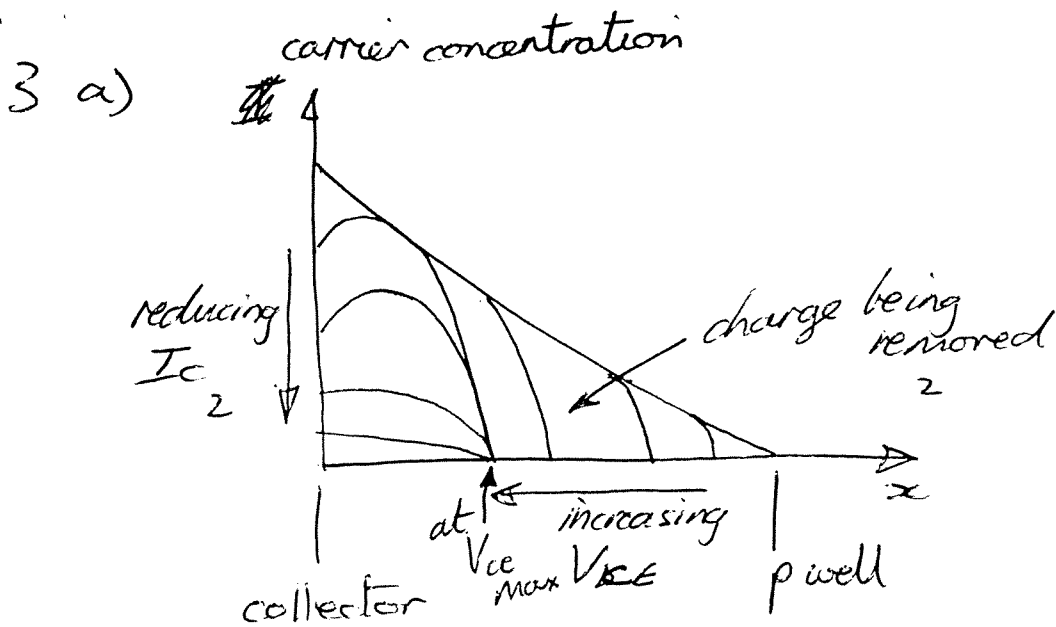 carrier concentration
3 a)
reducing
Ic
2
charge being
removed
2
x
at
Vce
max
increasing
VCE
p well
collector